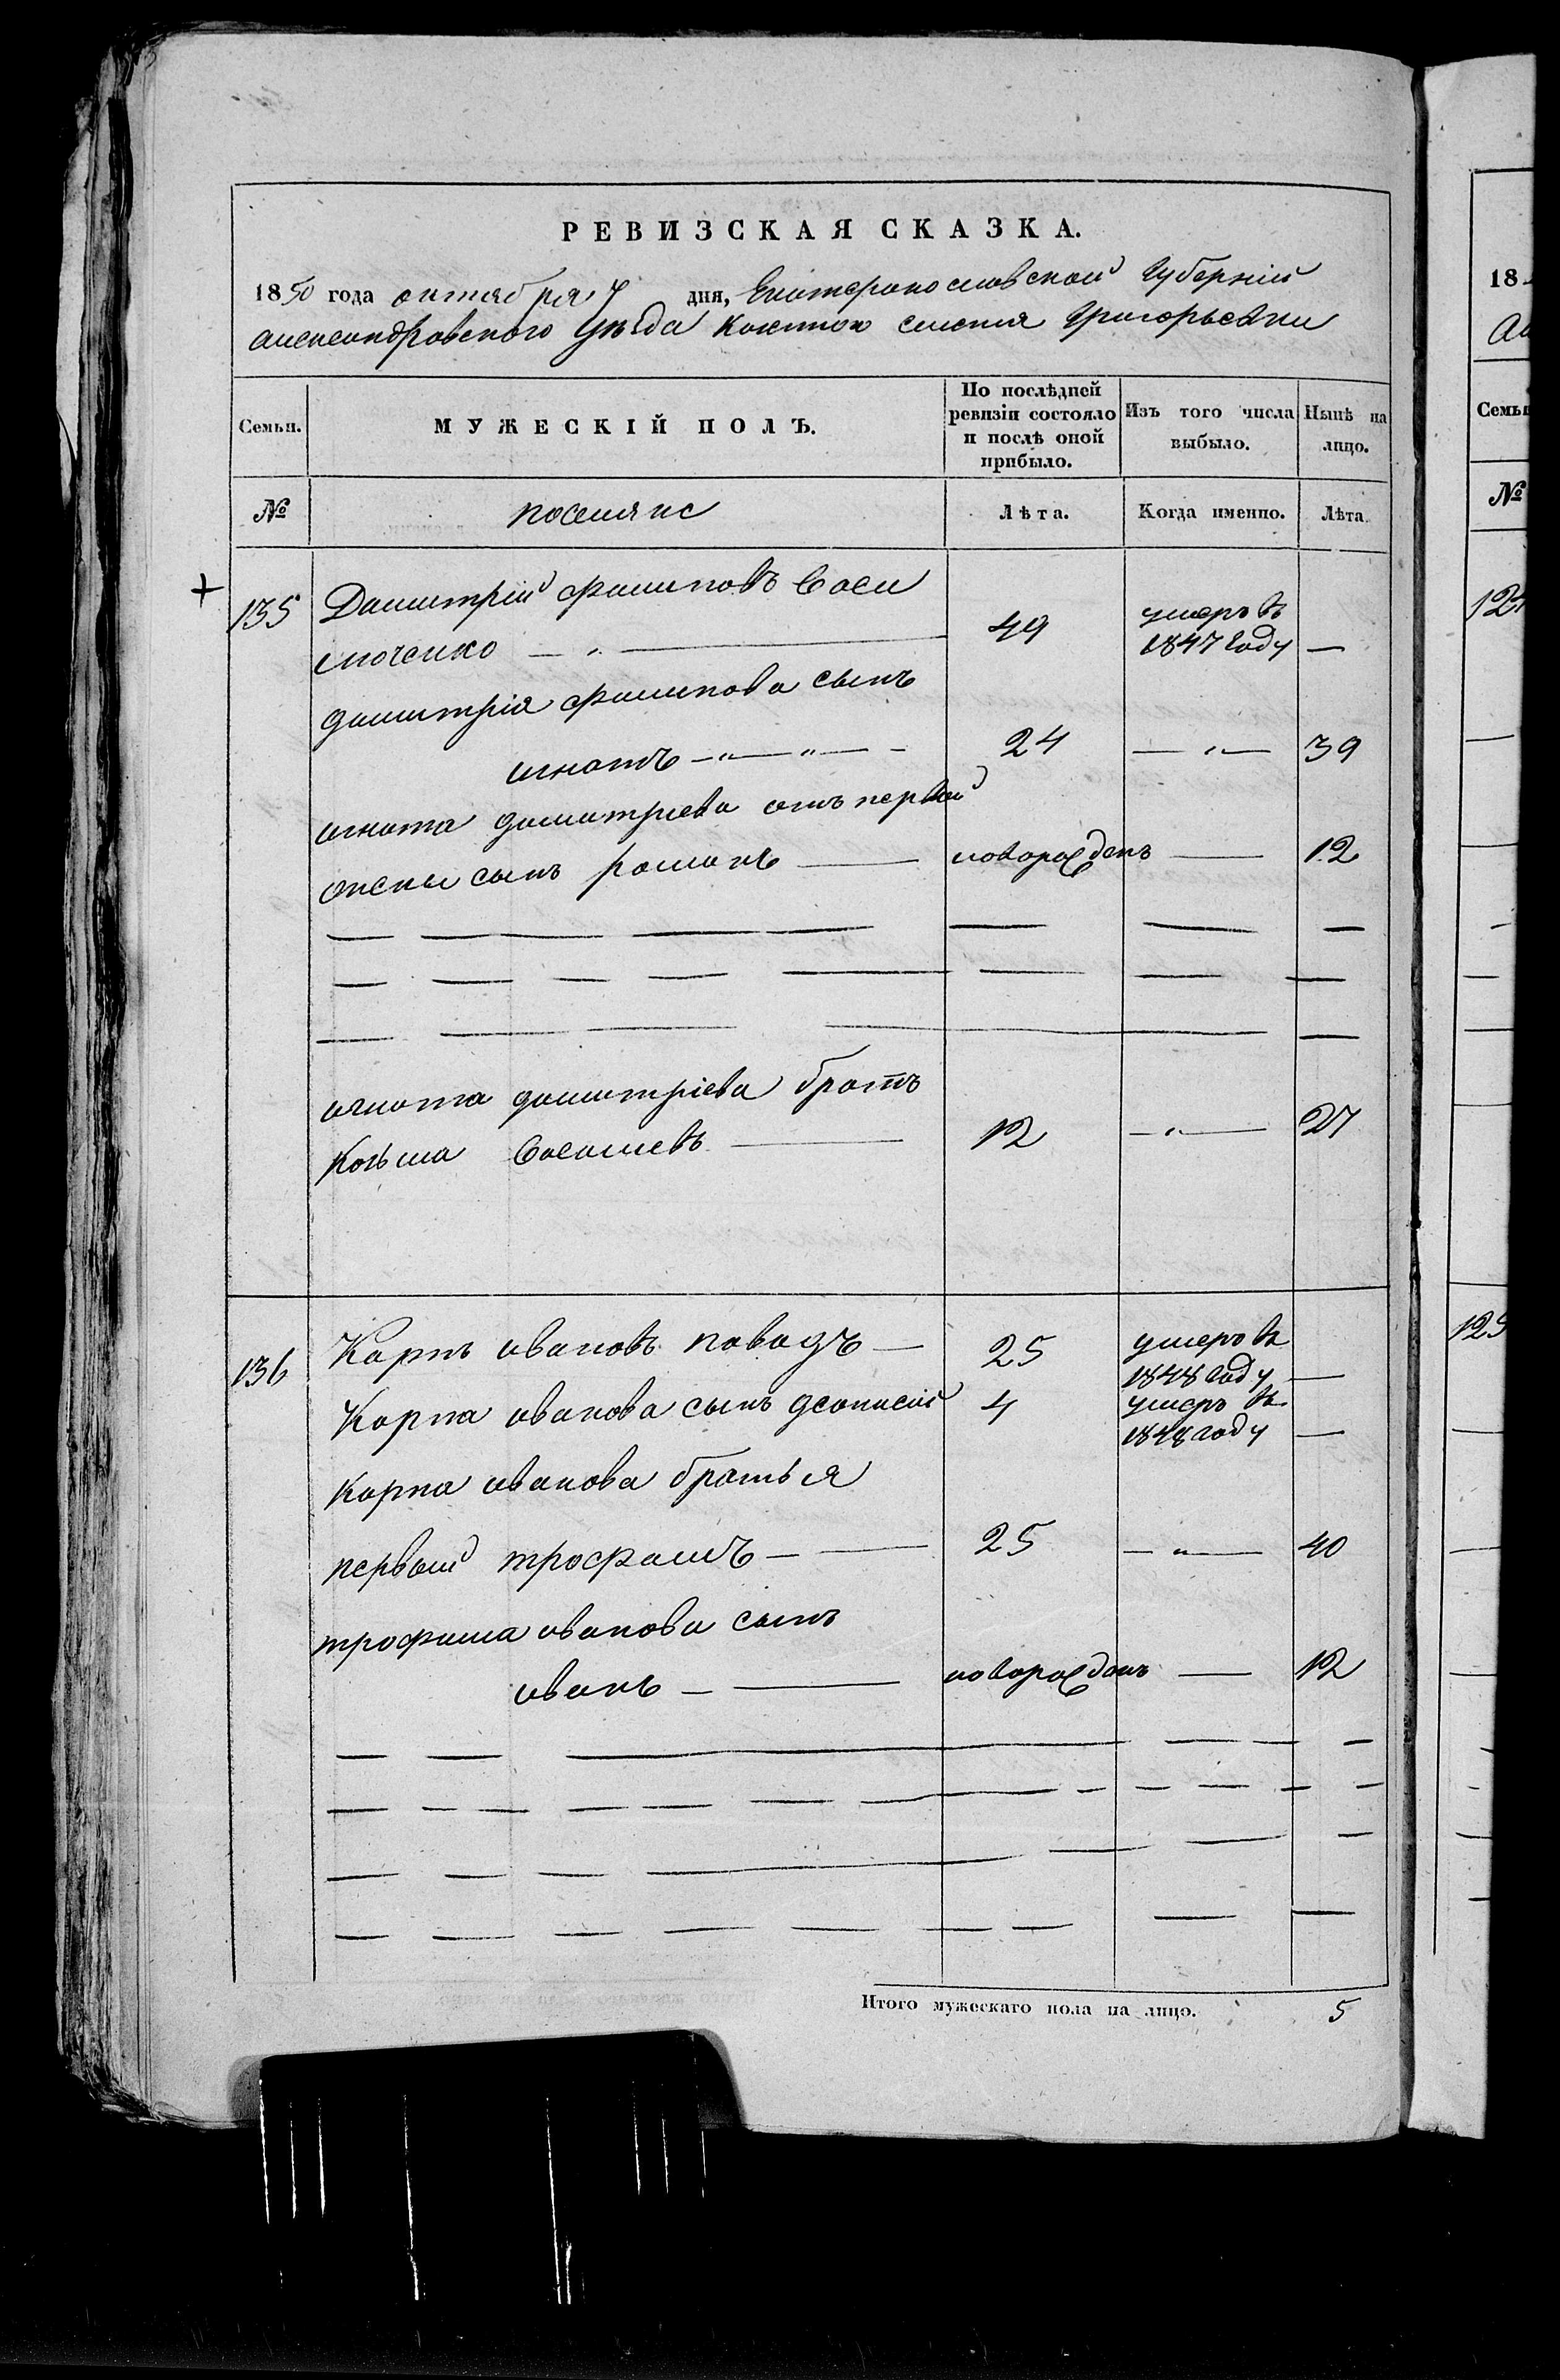 РЕВИЗСКАЯ СКАЗКА.
1850 года октября 7 дня, Екатеринославской Губерніи
Александровского Уѣзда Григорьевки
Семьи. МУЖЕСКІЙ ПОЛЪ. По послѣдней ревизіи состояло и послѣ оной прибыло. Изъ того числа выбыло. Нынѣ на лицо.
№ поселяне Лѣта. Когда именно. Лѣта
135 Димитрій Филиповъ Васи
люченко — „ — 49 умеръ въ 1847 году —
димитрія Филипова сынъ
игнатъ — „ — „ — 24 — „ — 39
игната димитріева отъ первой
жены сынъ романъ — новорожденъ — 12
игната димитріева братъ
Козьма — 12 — „ — 27
136 Карпъ ивановъ — 25 умеръ въ 1848 году —
Карпа иванова сынъ деонисій 4 умеръ въ 1848 году —
Карпа иванова братья
первый трофимъ — 25 — „ — 40
трофима иванова сынъ
иванъ — новорожденъ — 12
Итого мужескаго пола на лицо. 5
18
Семьи
№
124
125